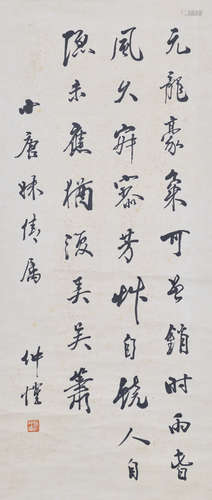 元龍豪氣可曾銷時雨春
風久寂寥芳艸自饒人自
隱未應猶復美吳簫
小唐妹倩属
仲愷